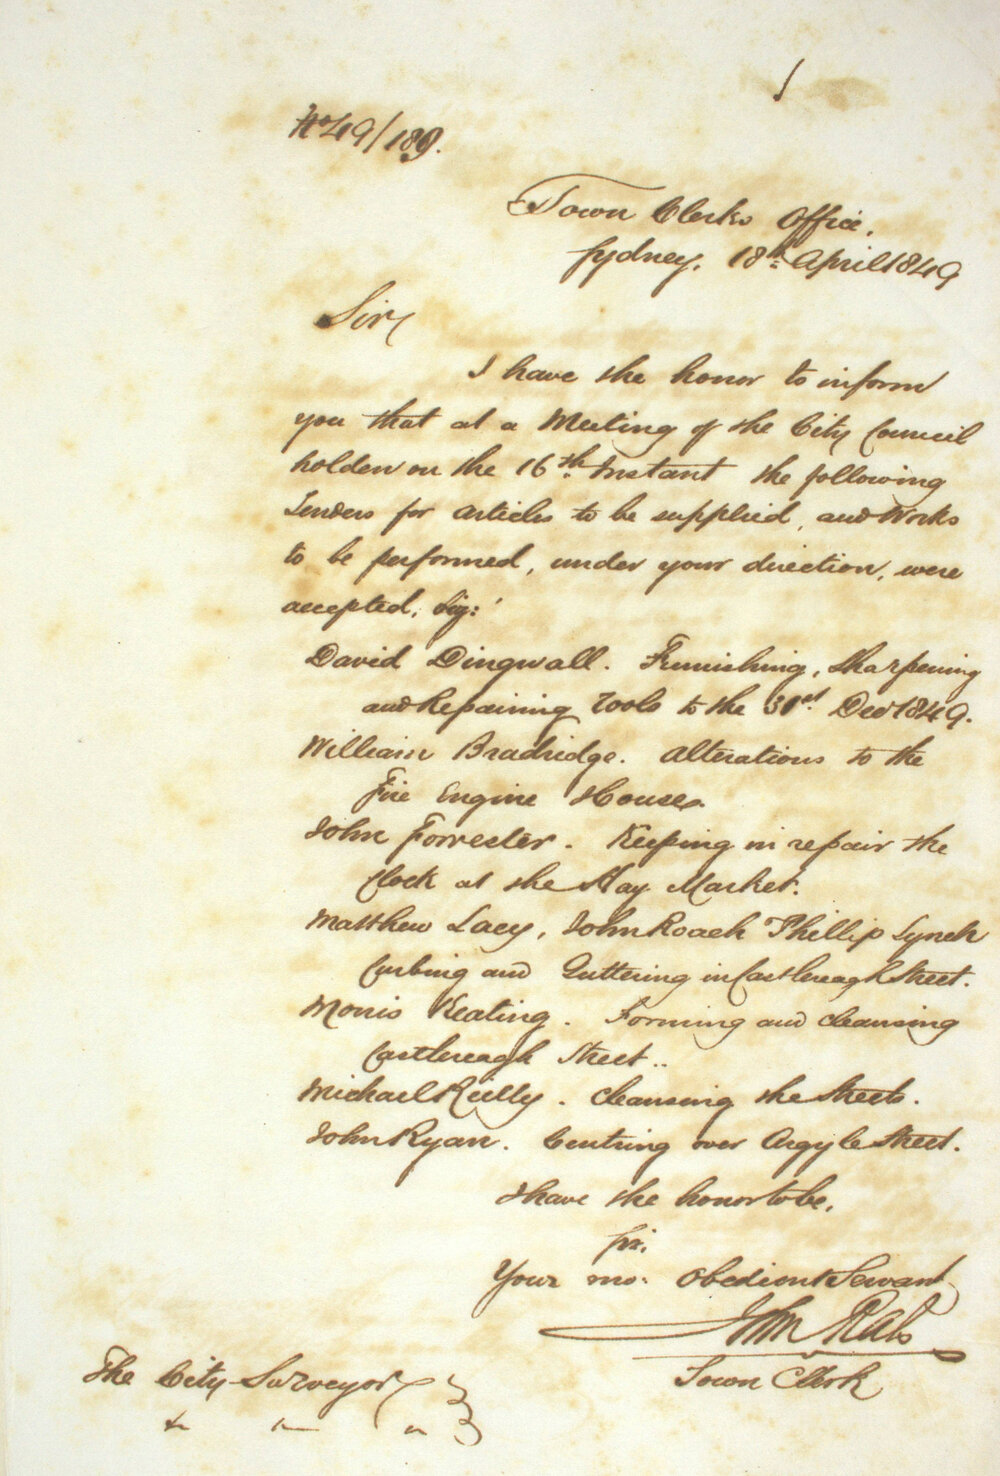 No 49/189.
Town Clerks Office.
Sydney. 18th April 1849
Sir
I have the honor to inform
you that at a Meeting of the City Council
holden on the 16th Instant the following
Tenders for articles to be supplied, and Works
to be performed, under your direction, were
accepted, Viz:
David Dingwall. Furnishing, Sharpening
and Repairing Tools to the 31st Decr 1849.
William Bradridge. Alterations to the
Fire Engine House.
John Forrester. Keeping in repair the
Clock at the Hay Market.
Matthew Lacy, John Roach Phillip Lynch
Curbing and Guttering in Castlereagh Street.
Morris Keating. Forming and cleansing
Castlereagh Street..
Michael Reilly. Cleansing the Streets.
John Ryan. Centring over Argyle Street.
I have the honor to be,
Sir,
Your mo: Obedient Servant
John Rae
Town Clerk
The City Surveyor